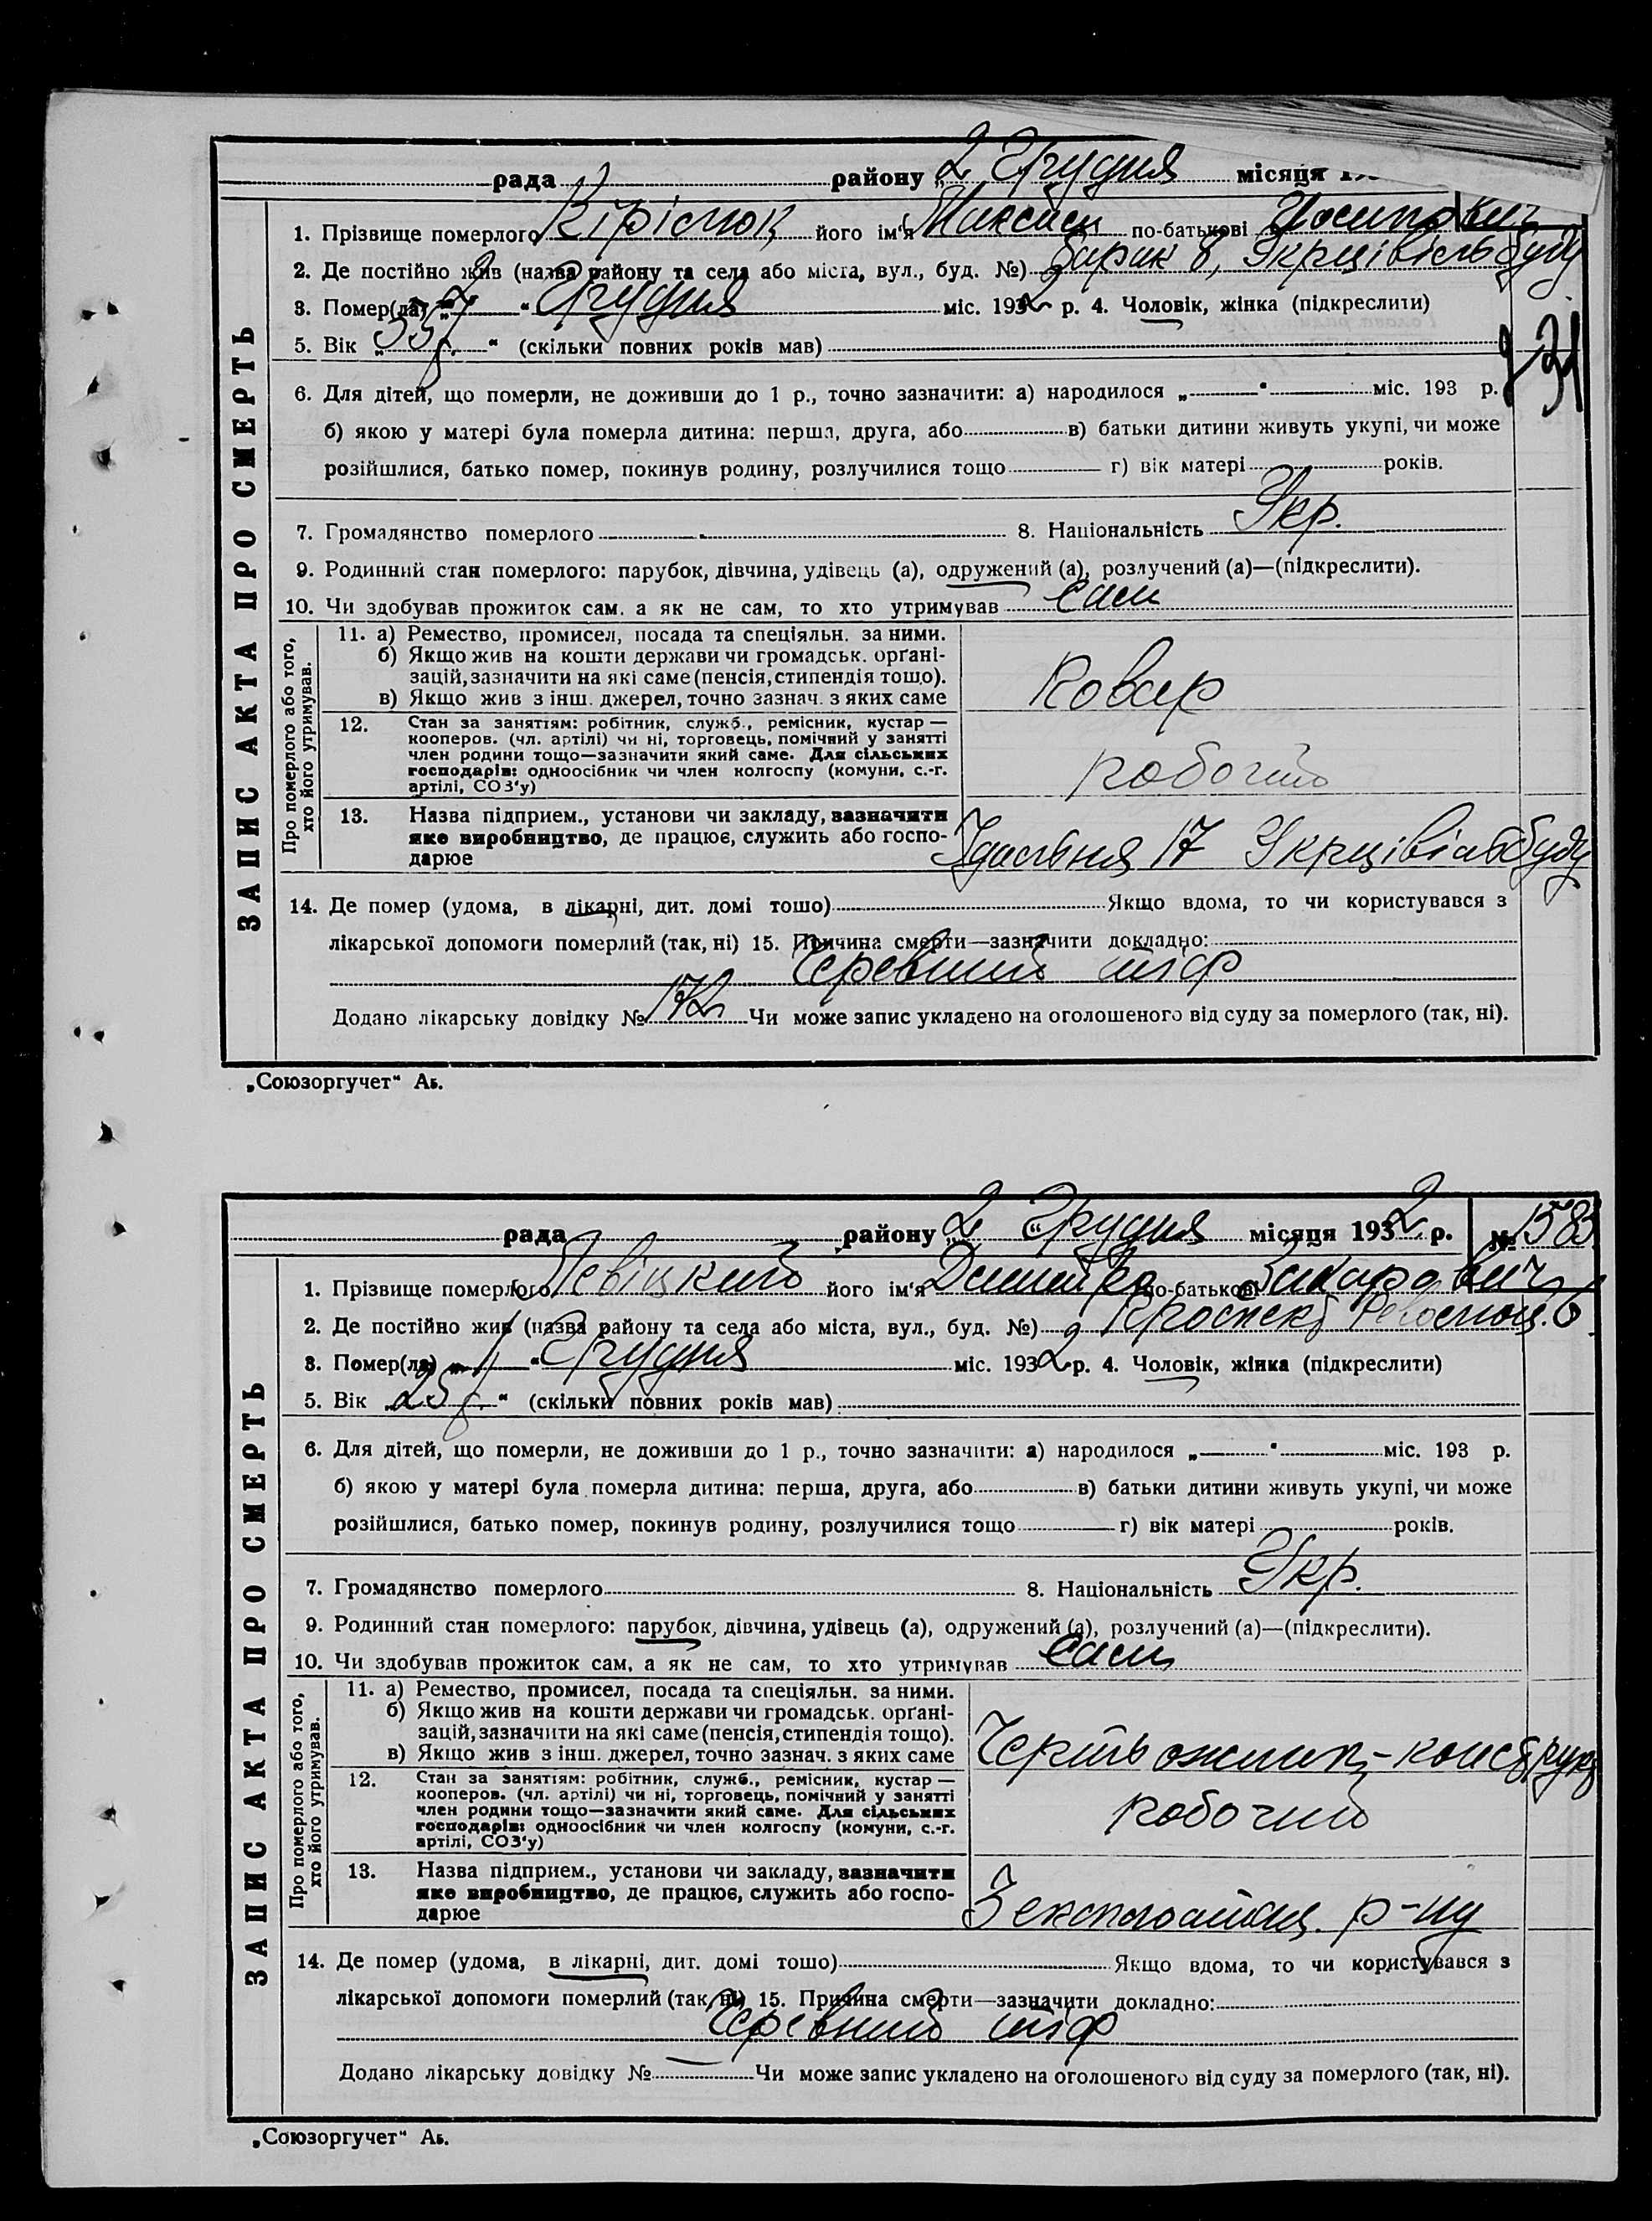 рада району „2 Грудня місяця 19
1. Прізвище померлого Кірісюк його ім'я Максим по-батькові Йосипович
2. Де постійно жив (назва району та села або міста, вул., буд. №) барак 8, Укрцівільбуду
3. Помер(ла) „2“ Грудня міс. 1932 р. 4. Чоловік, жінка (підкреслити)
5. Вік „55 р.“ (скільки повних років мав)
6. Для дітей, що померли, не доживши до 1 р., точно зазначити: а) народилося „ “ міс. 193 р.
б) якою у матері була померла дитина: перша, друга, або в) батьки дитини живуть укупі, чи може
розійшлися, батько помер, покинув родину, розлучилися тощо г) вік матері років.
7. Громадянство померлого 8. Національність Укр.
9. Родинний стан померлого: парубок, дівчина, удівець (а), одружений (а), розлучений (а)—(підкреслити).
10. Чи здобував прожиток сам, а як не сам, то хто утримував сам
ЗАПИС АКТА ПРО СМЕРТЬ
Про померлого або того, хто його утримував.
11. а) Ремество, промисел, посада та спеціяльн. за ними.
б) Якщо жив на кошти держави чи громадськ. орґані-
зацій, зазначити на які саме (пенсія, стипендія тощо).
в) Якщо жив з інш. джерел, точно зазнач. з яких саме
Ковар
12. Стан за заняттям: робітник, служб., ремісник, кустар —
кооперов. (чл. артілі) чи ні, торговець, помічний у занятті
член родини тощо—зазначити який саме. Для сільських
господарів: одноосібник чи член колгоспу (комуни, с.-г.
артілі, СОЗ'у)
робочий
13. Назва підприєм., установи чи закладу, зазначити
яке виробництво, де працює, служить або госпо-
дарює
17 Укрцівільбуду
14. Де помер (удома, в лікарні, дит. домі тощо) Якщо вдома, то чи користувався з
лікарської допомоги померлий (так, ні) 15. Причина смерти—зазначити докладно:
Черевний тіф
Додано лікарську довідку № 172 Чи може запис укладено на оголошеного від суду за померлого (так, ні).
„Союзоргучет“ Аь.
рада району „2“ Грудня місяця 1932 р. № 1583
1. Прізвище померлого Левіцкий його ім'я Дмитро по-батькові Захарович
2. Де постійно жив (назва району та села або міста, вул., буд. №) Проспект 6
3. Помер(ла) „1“ Грудня міс. 1932 р. 4. Чоловік, жінка (підкреслити)
5. Вік „25 р.“ (скільки повних років мав)
6. Для дітей, що померли, не доживши до 1 р., точно зазначити: а) народилося „ “ міс. 193 р.
б) якою у матері була померла дитина: перша, друга, або в) батьки дитини живуть укупі, чи може
розійшлися, батько помер, покинув родину, розлучилися тощо г) вік матері років.
7. Громадянство померлого 8. Національність Укр.
9. Родинний стан померлого: парубок, дівчина, удівець (а), одружений (а), розлучений (а)—(підкреслити).
10. Чи здобував прожиток сам, а як не сам, то хто утримував сам
ЗАПИС АКТА ПРО СМЕРТЬ
Про померлого або того, хто його утримував.
11. а) Ремество, промисел, посада та спеціяльн. за ними.
б) Якщо жив на кошти держави чи громадськ. орґані-
зацій, зазначити на які саме (пенсія, стипендія тощо).
в) Якщо жив з інш. джерел, точно зазнач. з яких саме
12. Стан за заняттям: робітник, служб., ремісник, кустар —
кооперов. (чл. артілі) чи ні, торговець, помічний у занятті
член родини тощо—зазначити який саме. Для сільських
господарів: одноосібник чи член колгоспу (комуни, с.-г.
артілі, СОЗ'у)
робочий
13. Назва підприєм., установи чи закладу, зазначити
яке виробництво, де працює, служить або госпо-
дарює
3 експлоатац. р-ну
14. Де помер (удома, в лікарні, дит. домі тощо) Якщо вдома, то чи користувався з
лікарської допомоги померлий (так, ні) 15. Причина смерти—зазначити докладно:
Черевний тіф
Додано лікарську довідку № — Чи може запис укладено на оголошеного від суду за померлого (так, ні).
„Союзоргучет“ Аь.